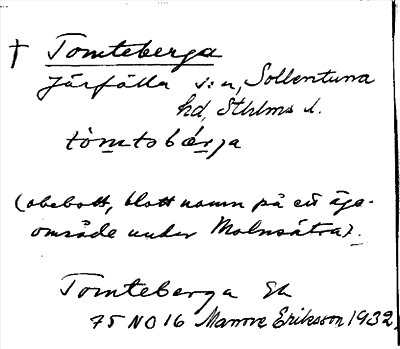 † Tomteberga
Järfälla s:n, Sollentuna
hd, Sthlms l.
tòmtobǽrja
(obebott, blott namn på ett äge-
område under Molnsätra).
Tomteberga Ek
75 NO 16 Manne Eriksson 1932